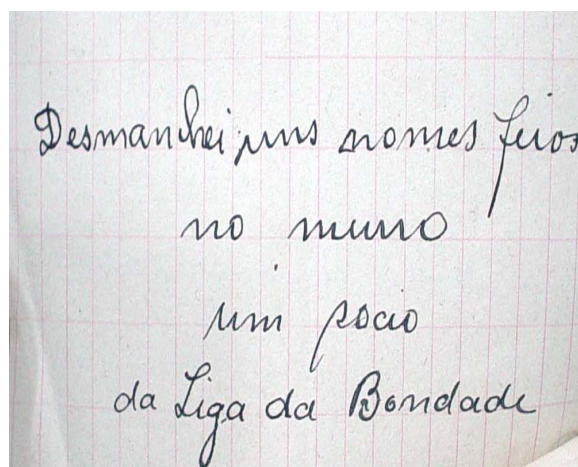 Desmanchei uns nomes feios
no muro
um socio
da Liga da Bondade